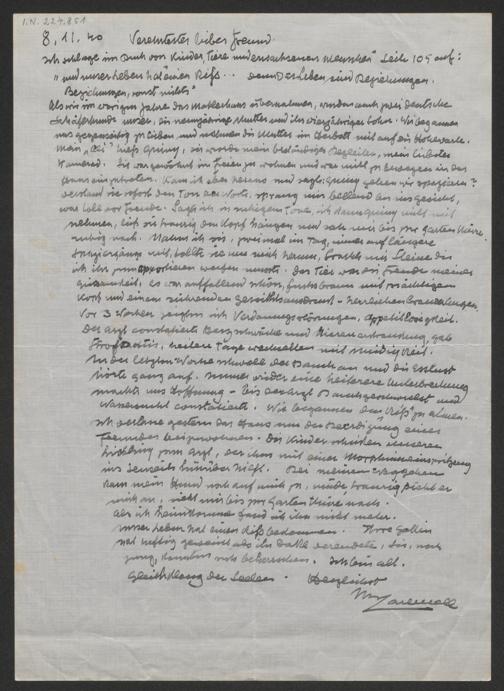 I.N. 224.851
8.11.40 Verehrtester lieber Freund.
Ich schlage im Buch von Kinder, Tiere und erwachsenen Menschen" Seite 105 auf:
"und unser Leben hat einen Riß... denn das Leben sind Beziehungen.
Beziehungen, sonst nichts"
Als wir im vorigen Jahre das übernahmen, wurden auch zwei deutsche
Schäferhunde unser, die neunjährige Mutter und ihr vierjähriger Sohn. Wir begannen
uns gegenseitig zu lieben und nahmen die Mutter im Herbst mit auf die Hohewarte.
hieß Gunny, sie wurde mein beständiger Begleiter, mein liebster
Kamerad. Sie war gewöhnt im Freien zu wohnen und war nicht zu bewegen in das
Haus einzutreten. Kam ich aber heraus und sagte: Gunny gehen wir spazieren?
verstand sie sofort den Ton der Worte, sprang mir bellend an ins Gesicht,
war toll vor Freude. Sagte ich in ruhigem Tone, ich kann Gunny nicht mit
nehmen, ließ sie traurig den Kopf hängen und sah mir bis zur Garten Türe
ruhig nach. Nahm ich sie, zweimal im Tag, immer auf längere
Spaziergänge mit, tollte sie um mich herum, brachte mir Steine die
ich ihr zum apportieren werfen musste. Das Tier war die Freude meiner
Einsamkeit, es war auffallend schön, fuchsbraun mit prächtigem
Kopf und einem rührenden Gesichtsausdruck - herrlichen braunen Augen.
Vor 3 Wochen zeigten sich Verdauungsstörungen, Appetitlosigkeit.
Der Arzt constatierte Herzschwäche und Nierenerkrankung, gab
heitere Tage wechselten mit Müdigkeit.
In der letzten Woche schwoll der Bauch an und die Esslust
hörte ganz auf. Immer wieder eine heiterere Unterbrechung
machte uns Hoffnung - bis der Arzt Bauchgeschwulst und
Wassersucht constatierte. Wir begannen den "Riß" zu ahnen.
Ich verliess gestern das Haus um der Beerdigung eines
Freundes beizuwohnen. Die Kinder schickten unseren
Liebling zum Arzt, der ihn mit einer Morphiumeinspritzung
ins Jenseits hinüber rief. Bei meinem Weggehen
kam mein Hund noch auf mich zu, müde, traurig sieht er
mich an, sieht mir bis zur Garten Türe nach.
Als ich heimkomme fand ich ihn nicht mehr.
Unser Leben hat einen Riß bekommen. Ihre Gattin
hat heftig geweint als ihr Dakl verendete, Sie, noch
jung, konnten sich beherrschen. Ich bin alt.
Gleichklang der Seelen. Herzlichst